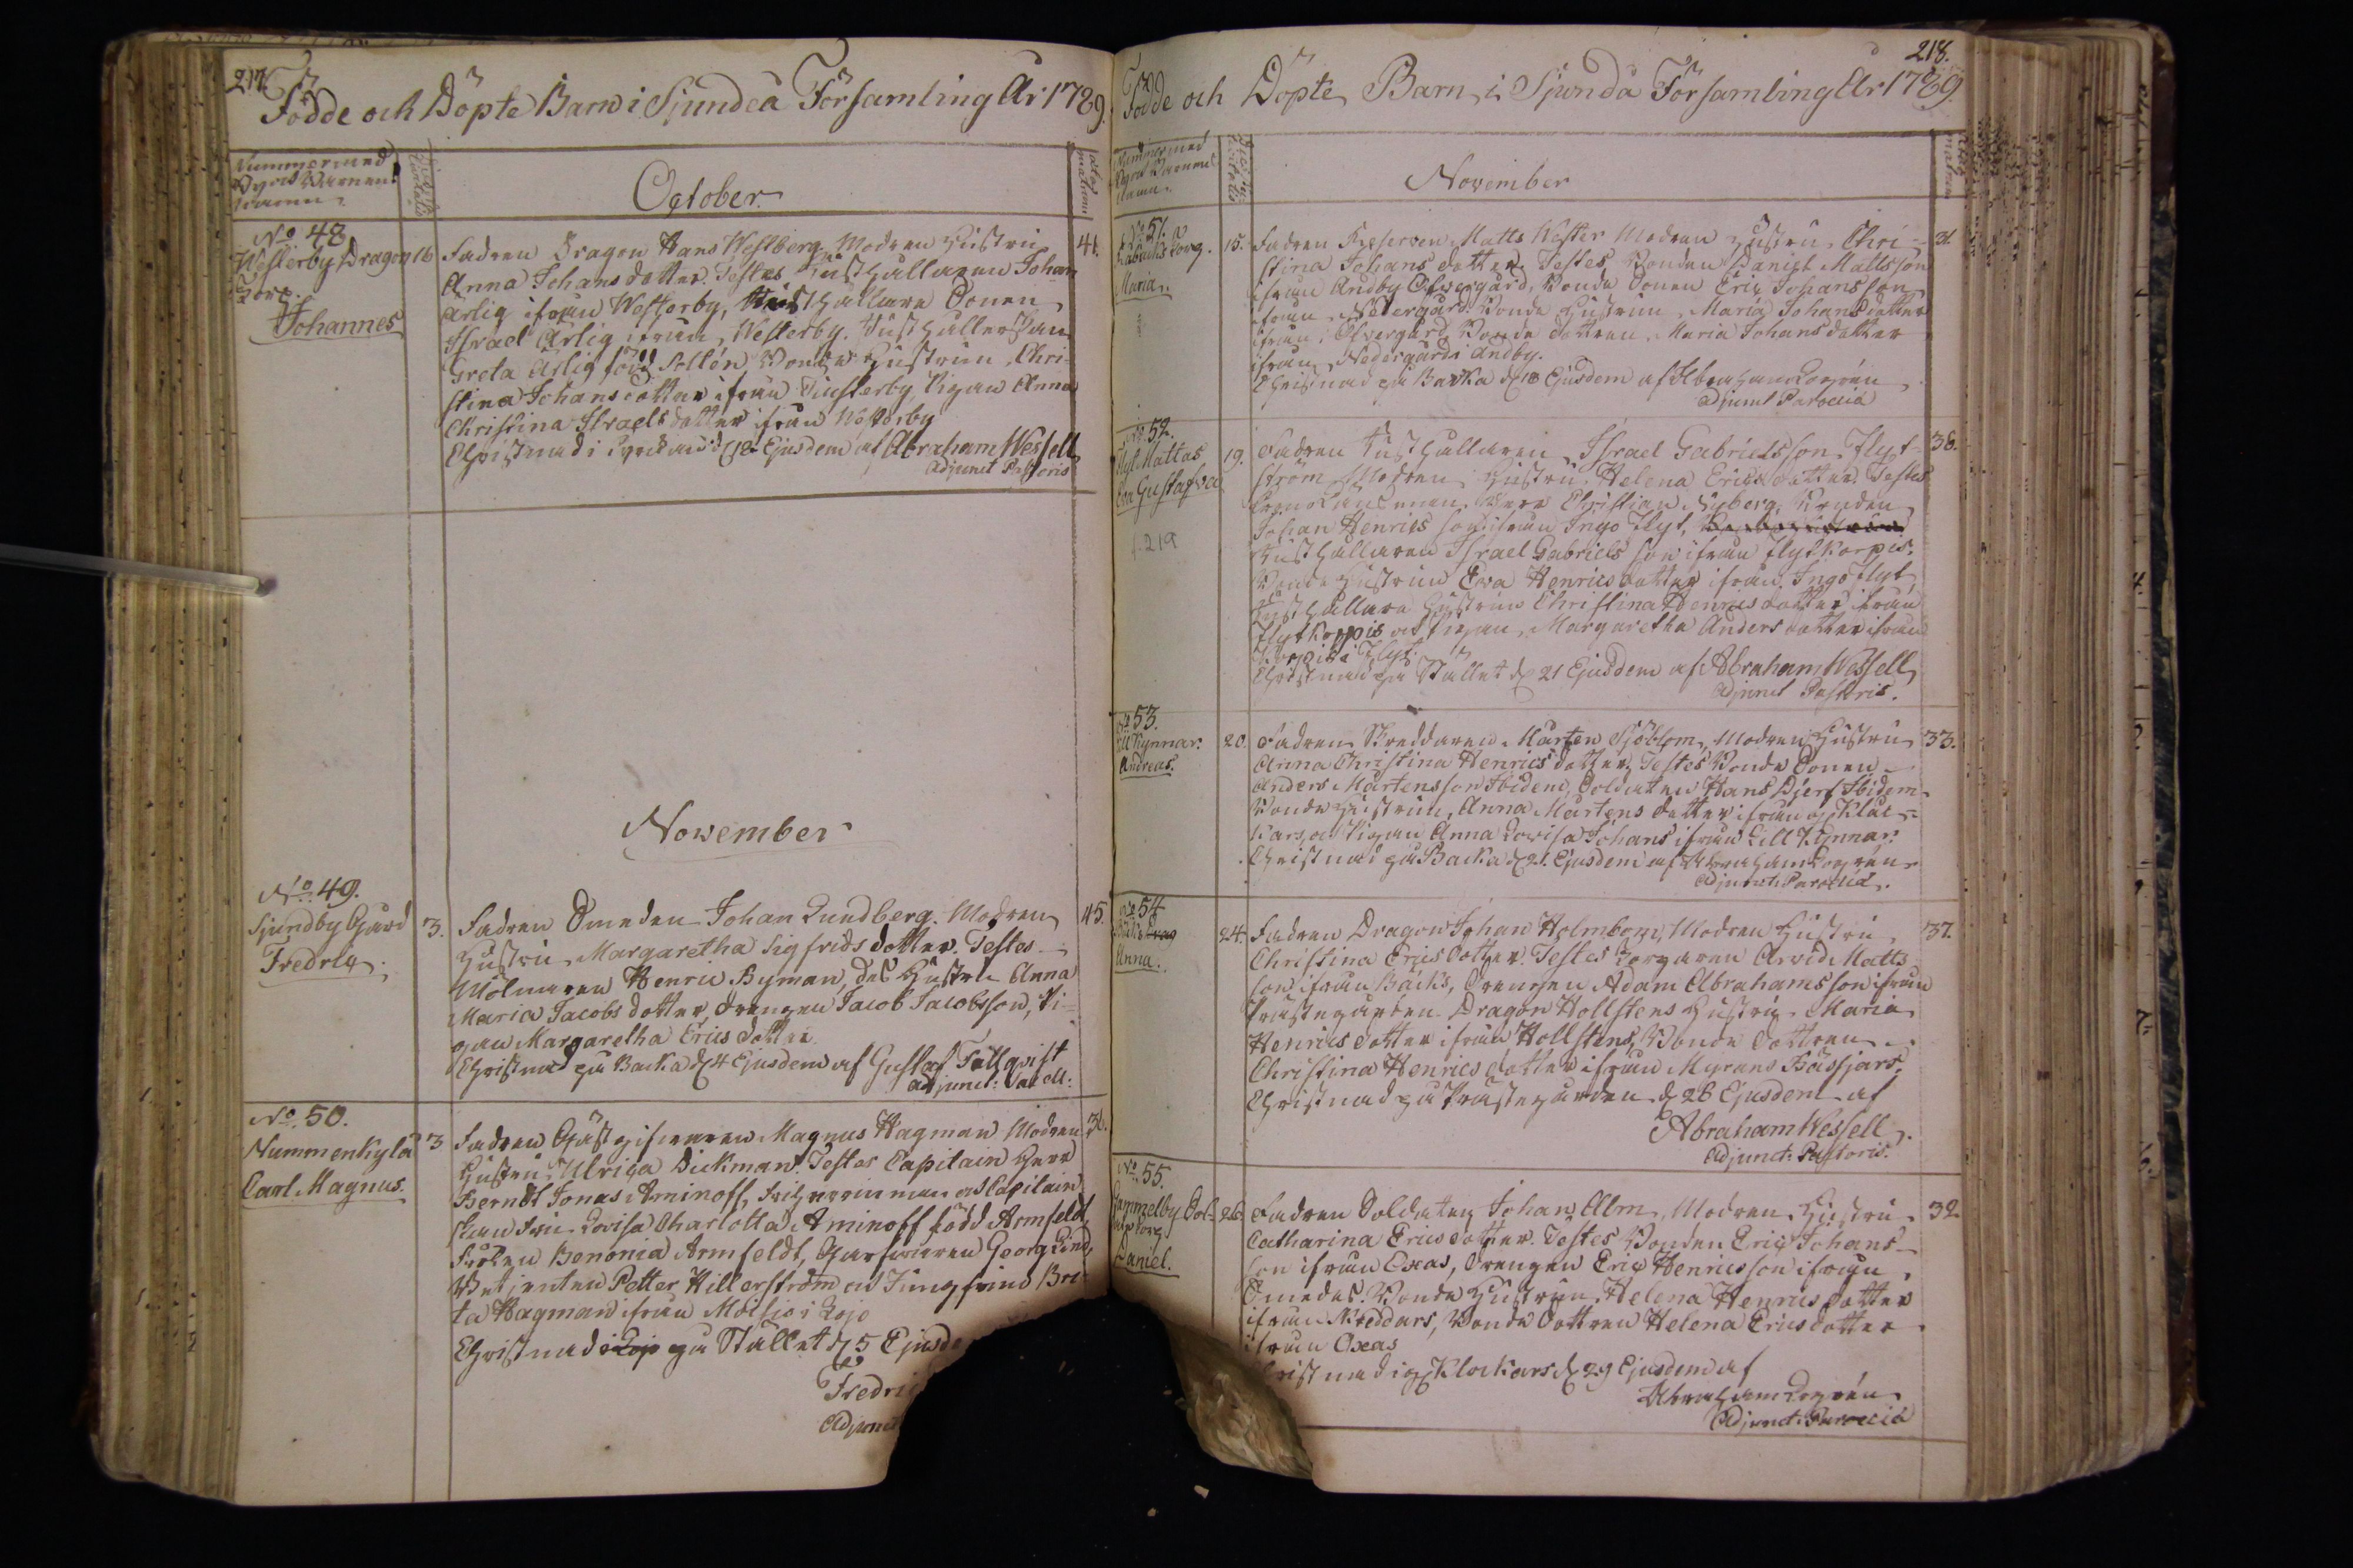 217.
Födde och Döpte Barn i Sjundeå Församling År 1789.
Nummer med
Byns Barnens
namn.
October.
ætas
matrum
No 48
Westerby Dragon
Torp.
Johannes
16
Fadren Dragon Hans Westberg, Modren Hustru
41.
Anna Johansdotter. Testes Rusthållaren Johan
Ärlig ifrån Westerby, Rusthållare Sonen
Israel Ärlig ifrån Westerby. Rusthållerskan
Greta Ärlig född Sellén, Bonde Hustrun Chri-
stina Johansdotter ifrån Purterby, Pigan Anna
Christina Israelsdotter ifrån Westerby
Christnad i Kyrkan d 18 Ejusdem af Abraham Wessell
Adjunct Pastoris
November
No 49.
Sjundby Gård
Fredric.
3.
Fadren Smeden Johan Lundberg. Modren
45.
Hustru Margaretha Sigfrids dotter. Testes
Mölnaren Henric Byman, des Hustru Anna
Maria Jacobs dotter, drengen Jacob Jacobsson, Pi-
gan Margaretha Erics dotter
Christnad på Backa d 4 Ejusdem af Gustaf Fallqvist
Adjunct: Sacell:
No 50.
Nummenkylä
Carl Magnus.
3
Fadren Gästgifvaren Magnus Hagman Modren
36.
Hustru Ulrica Dickman. Testes Capitain Herr
Berndt Jonas Aminoff, Friherrinnan och Capitain
skan Fru Lovisa Charlotta Aminoff född Armfeldt,
Fröken Benonia Armfeldt, Garfvaren Georg Lind,
Betjenten Petter Hillerström och Jungfrun Bri-
ta Hagman ifrån Moisio i Lojo
Christnad på Stället d 5 Ejusde
Fredric
Adjunct
218.
Födde och Döpte Barn i Sjundå Församling År 1789.
Nummer med
Byns Barnens
namn.
November
ætas
matrum
No 51.
Torp.
Maria.
15.
Fadren Reserven Matts Wester Modren Hustru Chri-
31.
stina Johans dotter. Testes Bonden Daniel Mattsson
ifrån Andby Öfvergård, Bonde Sonen Eric Johansson
ifrån Nedergård. Bonde Hustrun Maria Johansdotter
ifrån Öfvergård, Bonde dottren Maria Johansdotter
ifrån Nedergård i Andby.
Christnad på Backa d 18 Ejusdem af Abraham Logrén
Adjunct Paroecia
No 52.
Flyt Mattas
Eva Gustafva
f. 219
19.
Fadren Rusthållaren Israel Gabrielsson Flyt-
38.
ström, Modren Hustru Helena Erics dotter. Testes
Krono Länsman Herr Christian Nyberg, Bonden
Johan Henricsson ifrån Ingo Flyt,
Rusthållaren Israel Gabrielsson ifrån Flyt Korpis.
Bonde Hustrun Eva Henricsdotter ifrån Ingo Flyt
Rusthållare Hustrun Christina Henricsdotter ifrån
Flyt Korpis och Pigan Margaretha Anders dotter ifrån
Korpis i Flyt.
Christnad på Stället d 21 Ejusdem af Abraham Wessell
Adjunct Pastoris.
No 53.
Lill Kynnar.
Andreas.
20.
Fadren Skreddaren Mårten Sjöblom, Modren Hustru
33.
Anna Christina Henrics dotter, Testes Bonde Sonen
Anders Mårtensson Ibidem, Soldaten Hans Djerf Ibidem
Bonde Hustrun Anna Mårtens dotter ifrån Kloc-
kars, och Pigan Anna Lovisa Johans ifrån Lill Kynnar.
Christnad på Backa d 21. Ejusdem af Abraham Logrén
Adjunct. Paroecia.
No 54
Anna.
24.
Fadren Dragon Johan Holmbom, Modren Hustru
37.
Christina Erics dotter. Testes Torparen Arvid Matts-
son ifrån Bäcks, Drengen Adam Abrahamsson ifrån
Prästegården. Dragon Hollstens Hustru Maria
Henricsdotter ifrån Hollstens, Bonde Dottren
Christina Henrics dotter ifrån Myrans Båsjars.
Christnad på Prästegården d 26 Ejusdem af
Abraham Wessell.
Adjunct. Pastoris.
No 55.
Gammelby Sol-
dat Torp
Daniel.
26.
Fadren Soldaten Johan Alm, Modren Hustru
32.
Catharina Erics dotter. Testes Bonden Eric Johans-
son ifrån Oxas, Drengen Eric Henricsson ifrån
Smedas. Bonde Hustrun Helena Henricsdotter
ifrån Skreddars, Bonde Dottren Helena Ericsdotter
ifrån Oxas
Christnad i Klockars d 29 Ejusdem af
Abraham Logrén
Adjunct. Paroecia